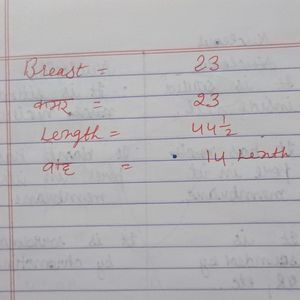 Breast = 23
कमर = 23
Length = 44 1/2
बांह = 14 Length